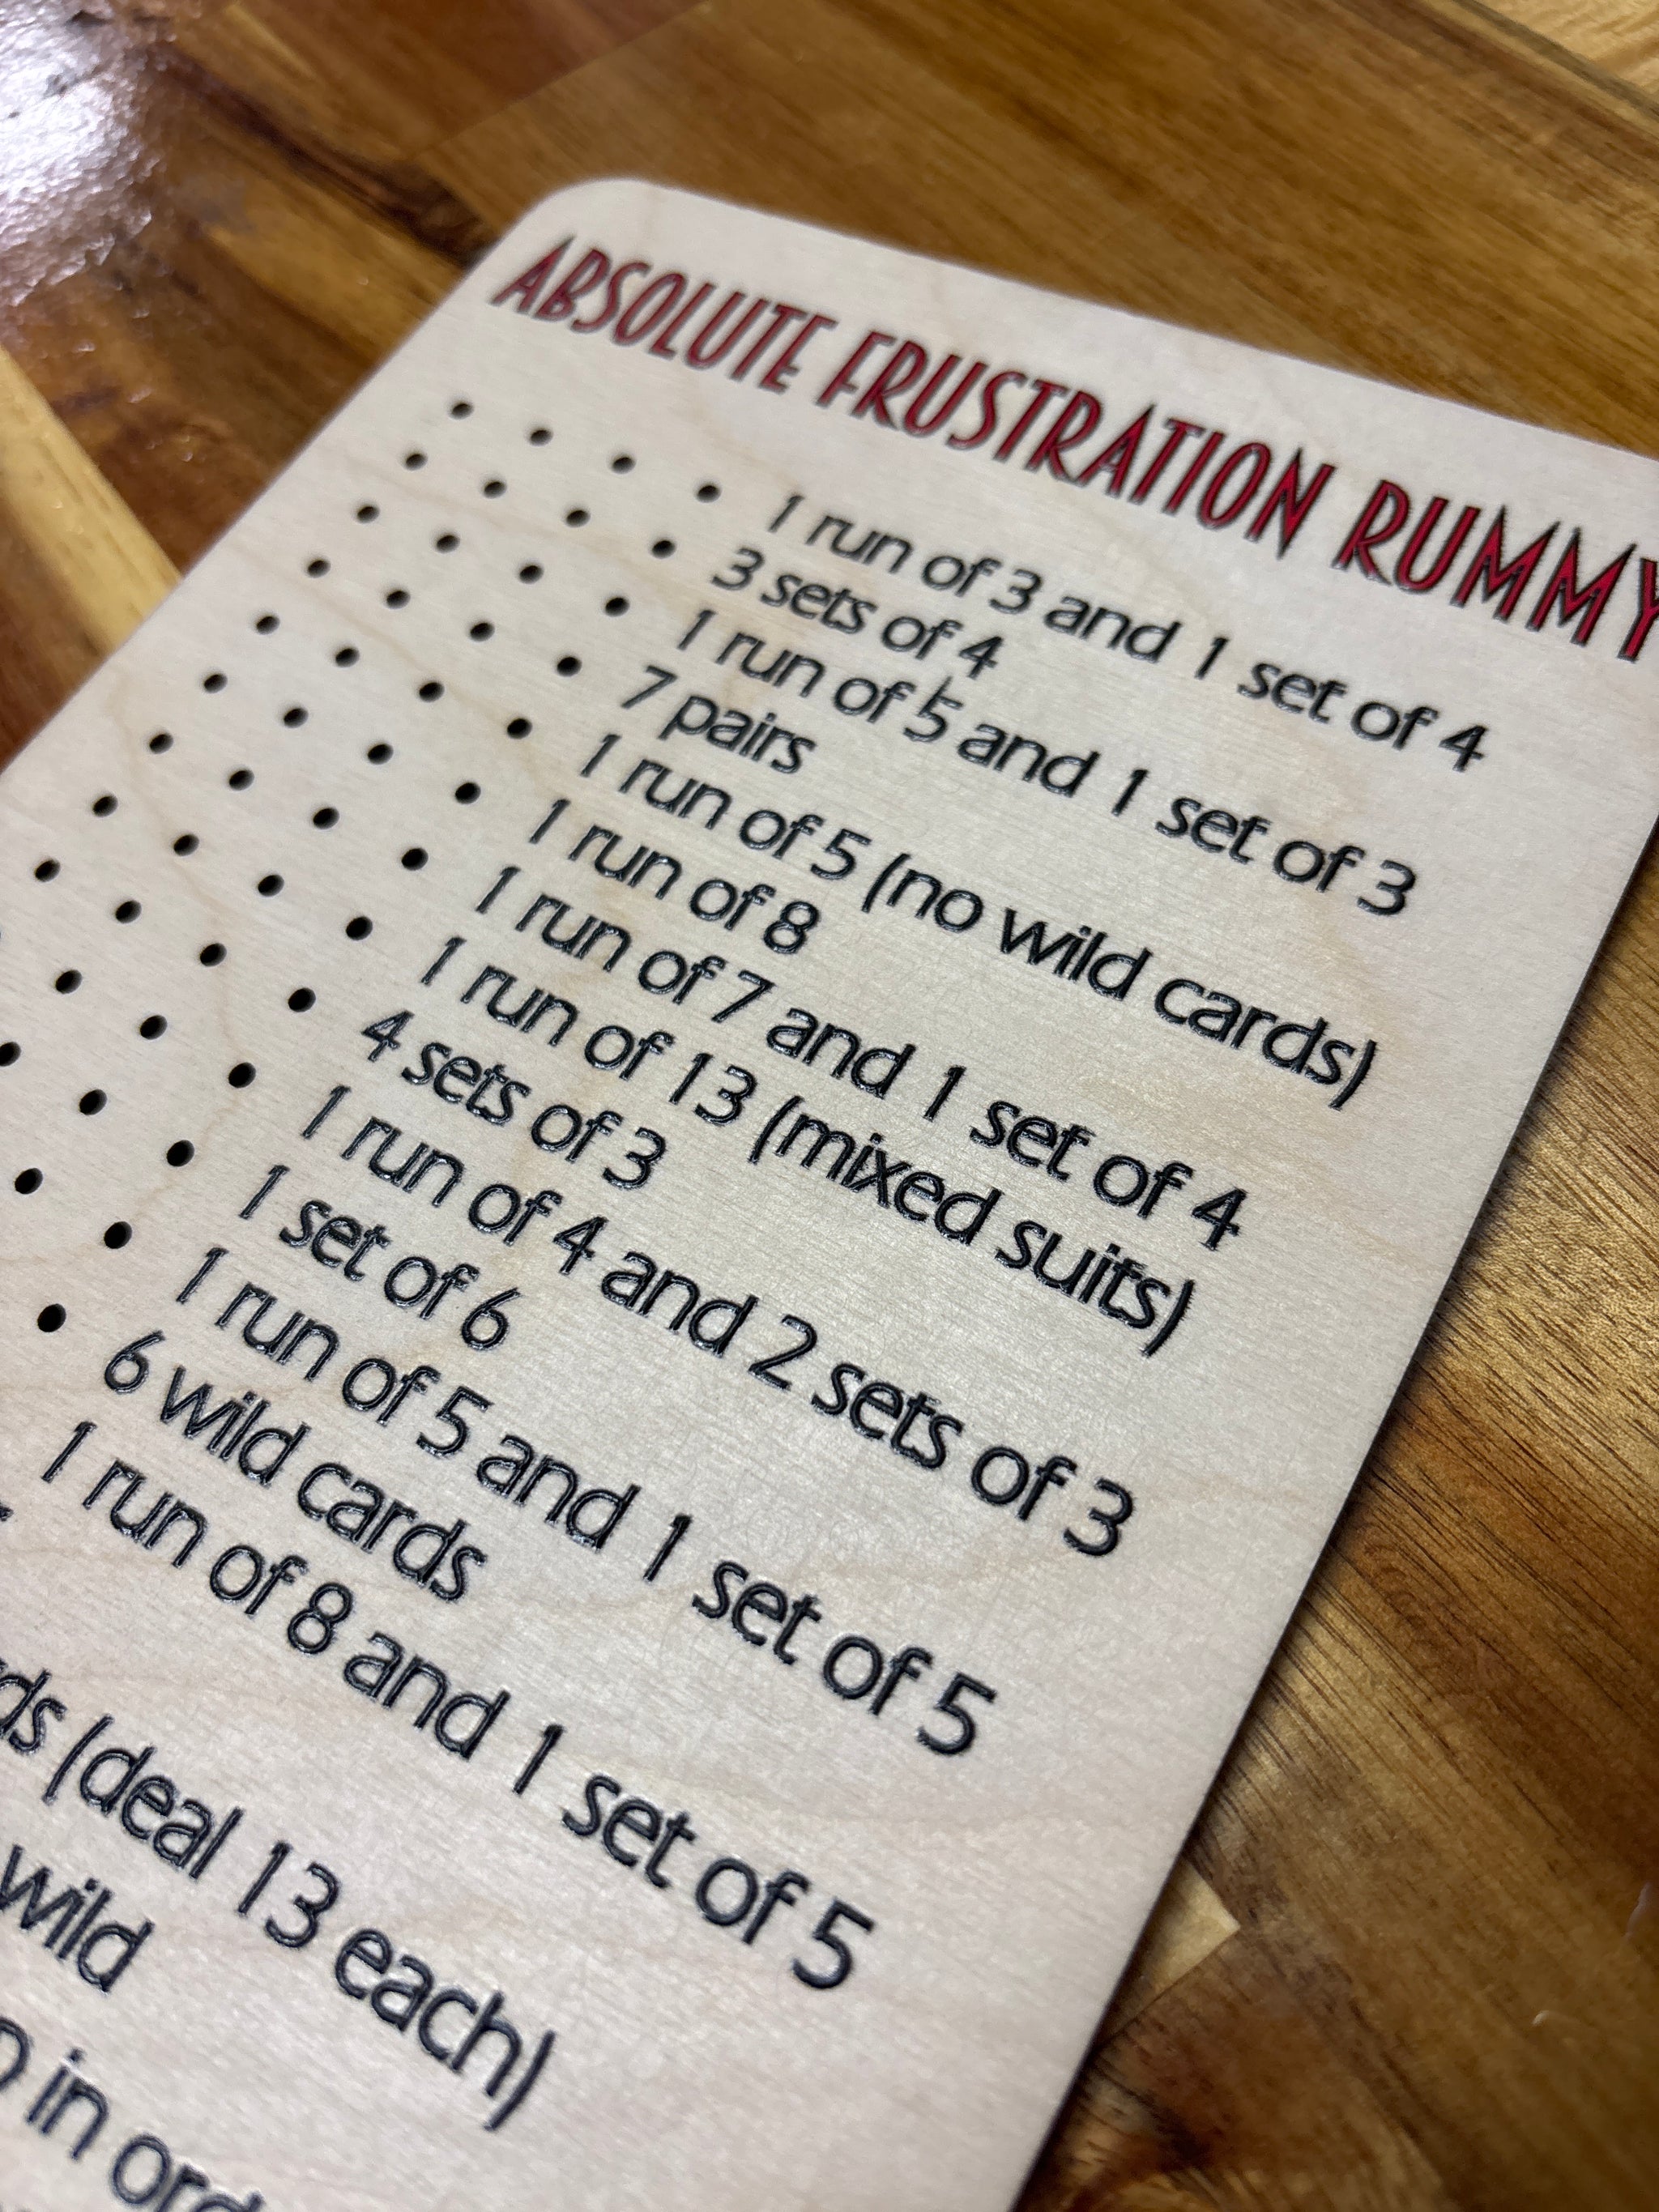 ABSOLUTE FRUSTRATION RUMMY
1 run of 3 and 1 set of 4
3 sets of 4
1 run of 5 and 1 set of 3
7 pairs
1 run of 5 (no wild cards)
1 run of 8
1 run of 7 and 1 set of 4
1 run of 13 (mixed suits)
4 sets of 3
1 run of 4 and 2 sets of 3
1 set of 6
1 run of 5 and 1 set of 5
6 wild cards
1 run of 8 and 1 set of 5
(deal 13 each)
wild
in